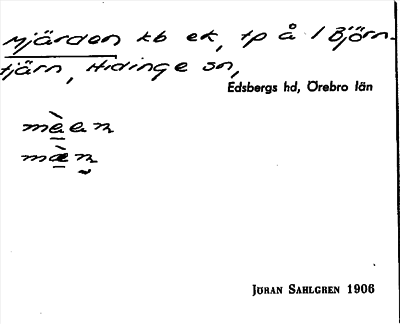 Mjärden kb ek, tp å 1 Björn-
tjärn, Hidinge sn,
Edsbergs hd, Örebro län
mæ̀en
mæ̀n
JÖRAN SAHLGREN 1906